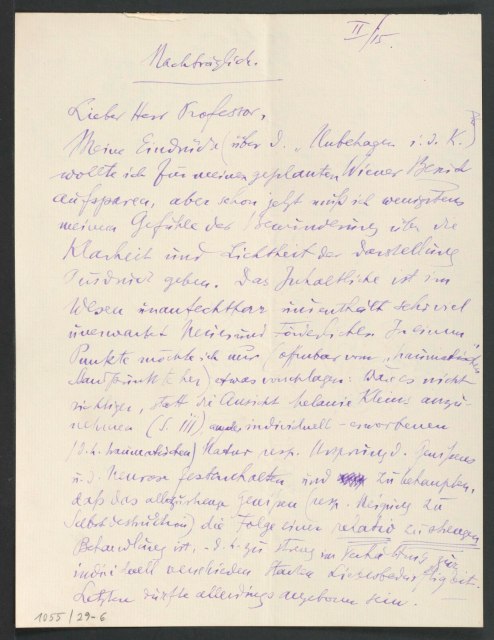 II/15.
Nachträglich.
Lieber Herr Professor,
Meine Eindrücke (über d. „Unbehagen i. d. K.")
wollte ich für meinen geplanten Wiener Besuch
aufsparen, aber schon jetzt muß ich wenigstens
meinem Gefühle der Bewunderung über die
Klarheit und Lichtheit der Darstellung
Ausdruck geben. Das Inhaltliche ist im
Wesen unantechtbar und enthält sehr viel
unerwartet Neues und Förderliches. In einem
Punkte möchte ich nur (offenbar vom „traumatischen
Standpunkte her) etwas vorschlagen: Wäre es nicht
richtiger, statt die Ansicht Melanie Kleins anzu-
nehmen (S. III) an der individuell-erworbenen
(d. h. traumatischen) Natur resp. Ursprung d. Gewissens
u. d. Neurose festzuhalten und zu behaupten,
daß das allzustrenge Gewissen (resp. Neigung zur
Selbstdestruktion) die Folge einer relativ zu strengen
Behandlung ist, d. h. zu streng im Verhältnis zur
individuell verschieden starken Liebesbedürftigkeit.
Letztere dürfte allerdings angeboren sein.
1055/29-6